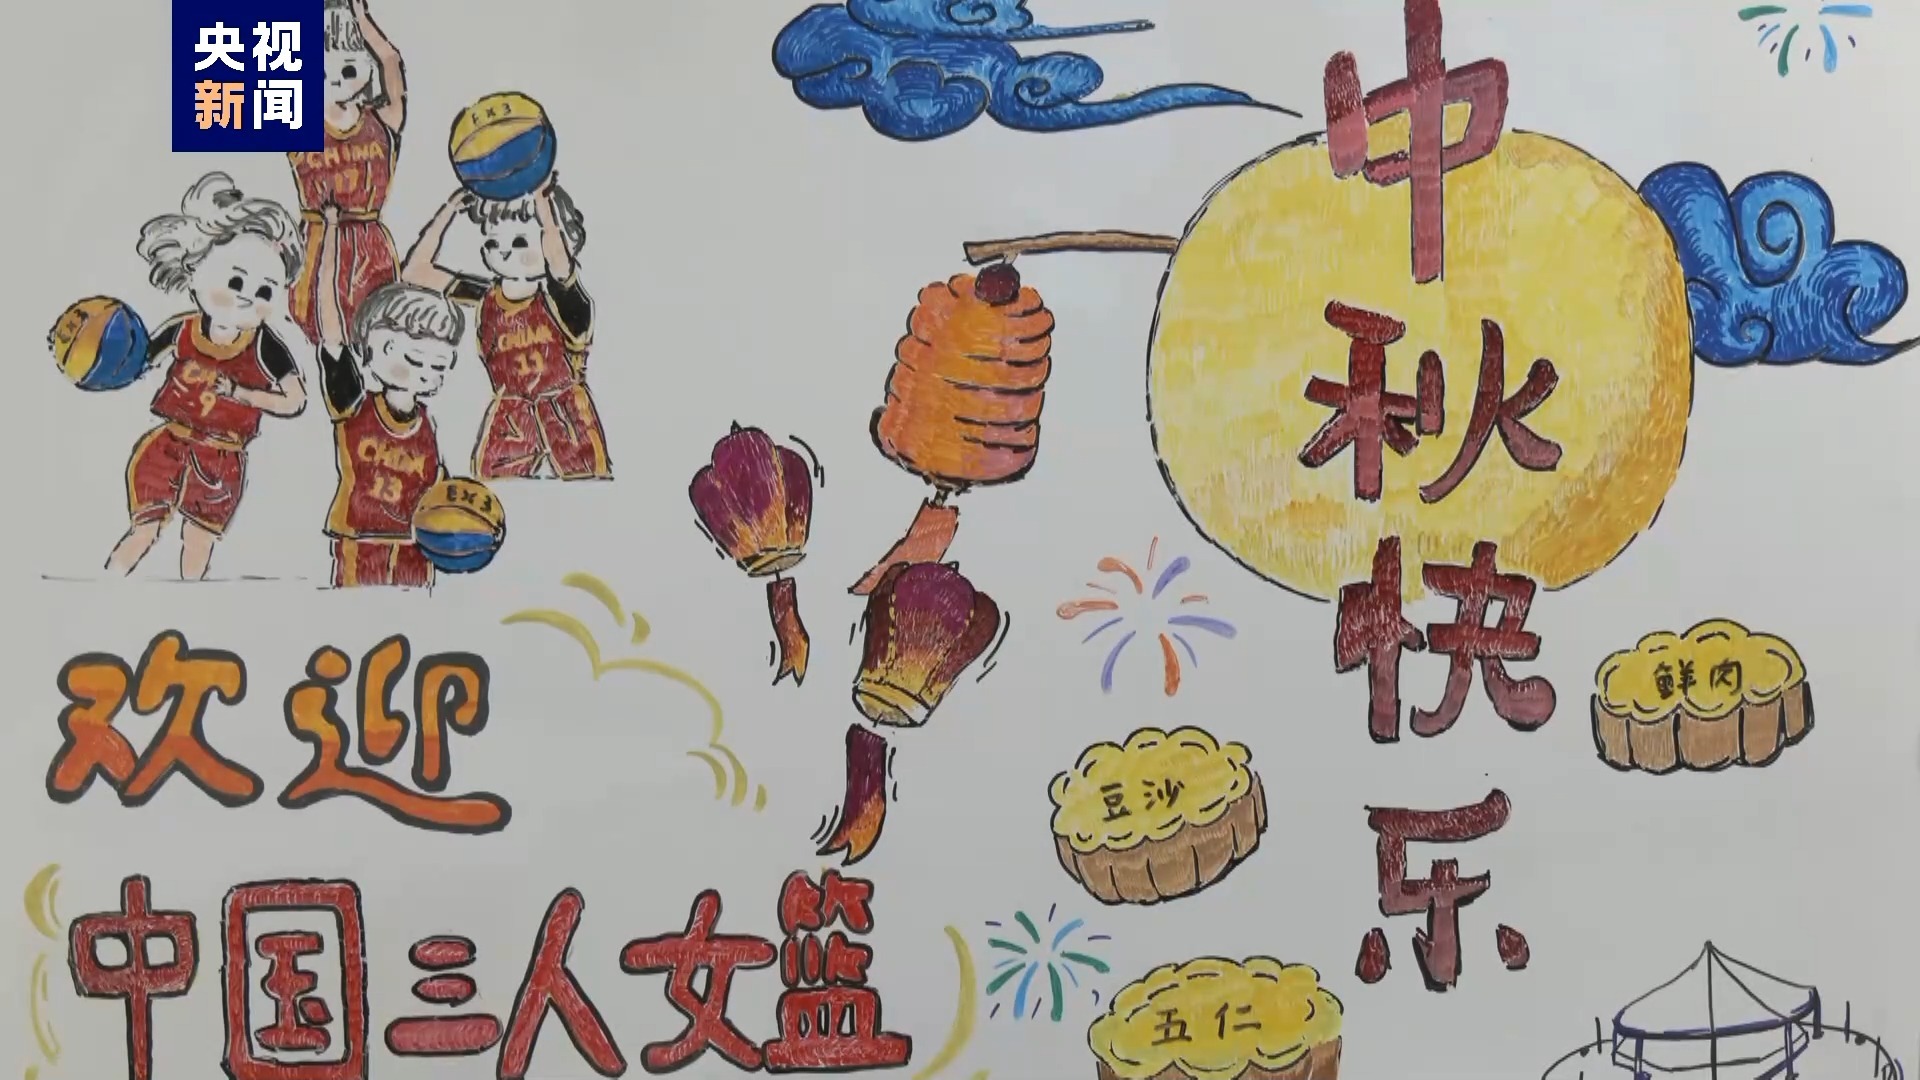 央视
新闻
CHINA
17
EX3
EX3
9
CHINA
11
CHINA
13
EX3
欢迎
中国三人女篮
中秋快乐
鲜肉
豆沙
五仁